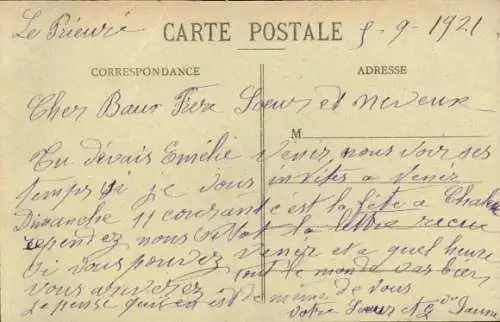 Le Prieuré CARTE POSTALE 5-9-1921
CORRESPONDANCE ADRESSE
Cher Baux Frere Soeur et neveux
M
Tu dévais Emélie venir nous voir ses
temps si je vous invites a venir
Dimanche 11 courant c'est la fête a
rependez nous la lettre recue
si vous pouvez venir et a quel heure
vous arriverez tout le monde vas bien
je pense quil en est de même de vous
votre Soeur